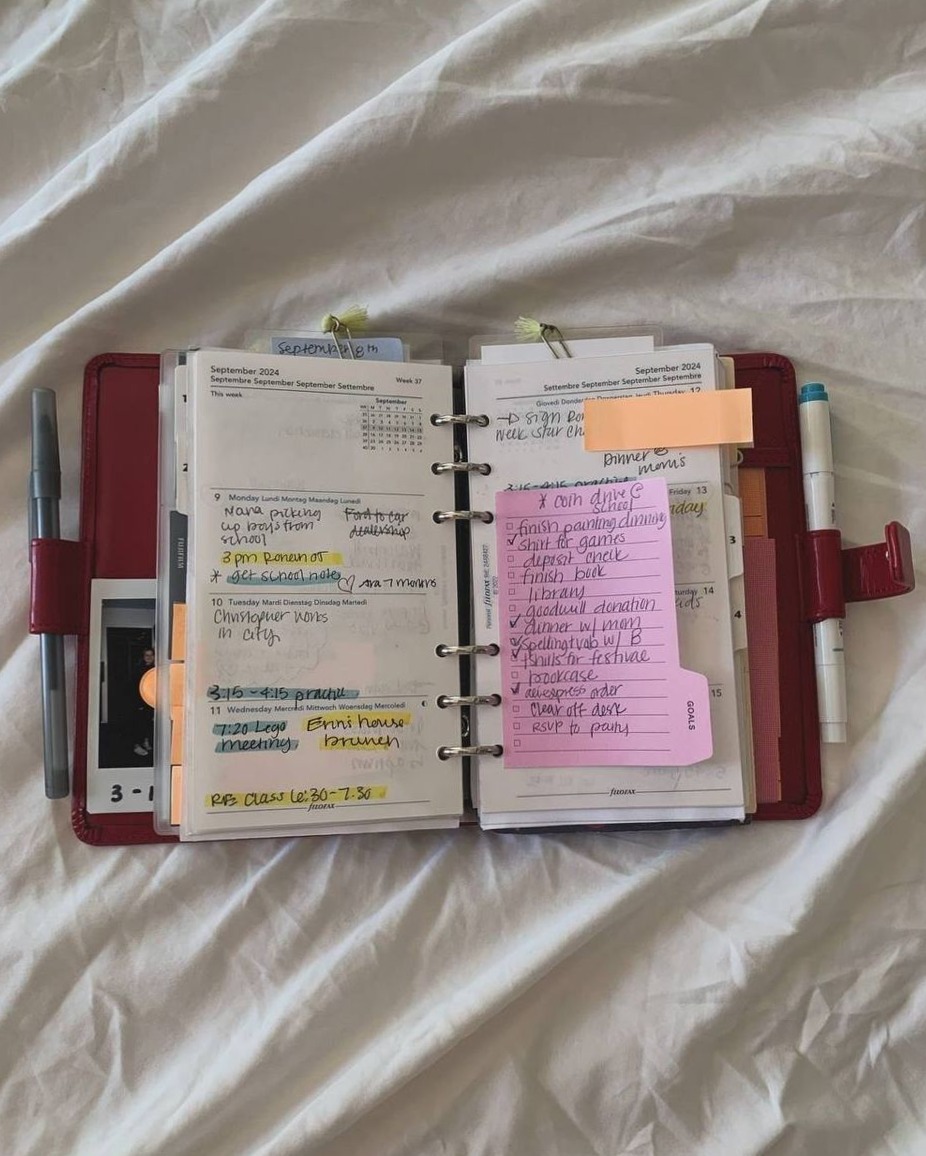 September 8th
September 2024
Septembre September September Settembre
Week 37
This week
September
9 Monday Lundi Montag Maandag Lunedì
Nana picking
up boys from
school
Ford to car
dealership
3 pm Ronen OT
* get school note
♡ Ara 7 months
10 Tuesday Mardi Dienstag Dinsdag Martedì
Christopher works
in city
3:15 - 4:15 practice
11 Wednesday Mercredi Mittwoch Woensdag Mercoledì
7:20 Lego
meeting
Erni house
brunch
RE class 6:30-7:30
FILOFAX
FUJIFILM
3 - 1
September 2024
Settembre September September Septembre
Giovedì Donderdag Donnerstag Jeudi Thursday 12
→ sign
week star
Dinner @
mom's
3:15-4:15 practice
Friday 13
14
15
* coin drive @
school
☐ finish painting dinning
☑ shirt for games
☐ deposit check
☐ finish book
☐ library
☐ goodwill donation
☑ dinner w/ mom
☑ spelling+vab w/ B
☑ for festival
☐ bookcase
☑ aliexpress order
☐ clear off desk
☐ RSVP to party
☐
GOALS
3
4
filofax